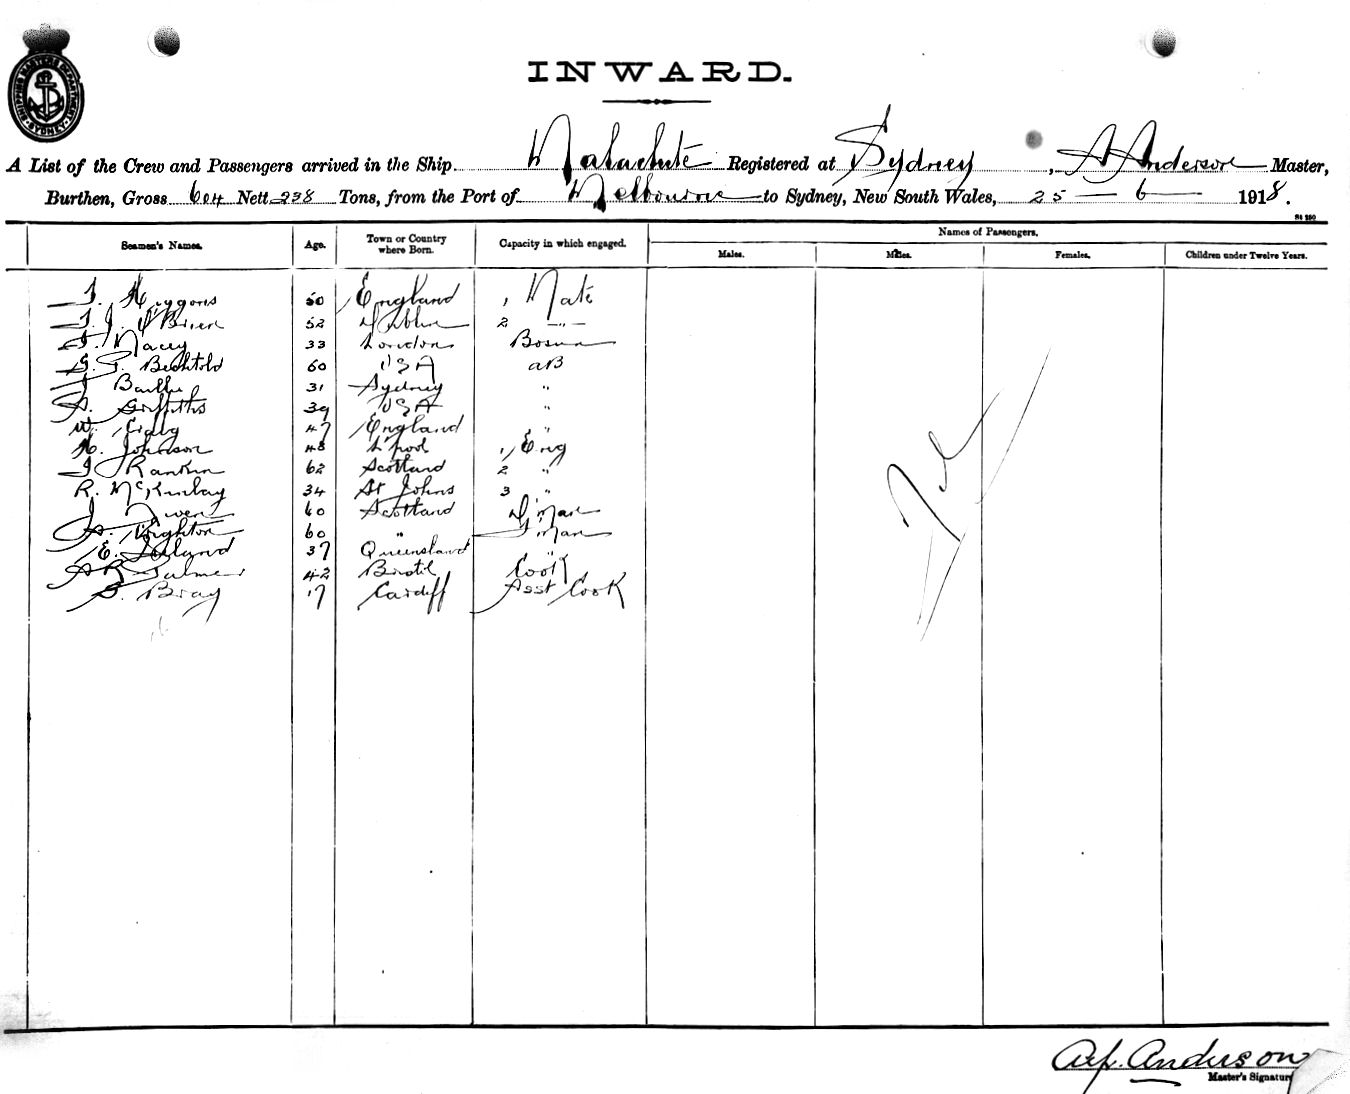 SHIPPING MASTERS DEPARTMENT SYDNEY
INWARD.
A List of the Crew and Passengers arrived in the Ship Malachite Registered at Sydney, A Anderson Master,
Burthen, Gross 604 Nett 238 Tons, from the Port of Melbourne to Sydney, New South Wales, 25 — 6 — 1918.
Seamen's Names. Age. Town or Country where Born. Capacity in which engaged. Names of Passengers.
Males. Males. Females. Children under Twelve Years.
Higgons 50 England 1 Mate
O'Brien 52 Dublin 2 —"—
Macey 33 London Bosun
Bechtold 60 USA AB
31 Sydney "
A. Griffiths 39 USA "
W. Craig 47 England "
H. Johnson 48 L'pool 1 Eng
J Rankin 62 Scotland 2 "
R. McKinlay 34 St Johns 3 "
J. Owens 60 Scotland D'man
Leighton 60 " F'man
E. 37 Queensland "
A R Palmer 42 Bristol Cook
S. Bray 17 Cardiff Asst Cook
Nil
Alf. Anderson
Master's Signature